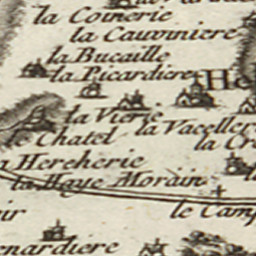 la Coinerie
la Cauviniere
la Bucaille
la Picardiere
la Vierie
la Vaceller
le Chatel
la Cr
Hereherie
la Haye Morain
le Camp
enardiere